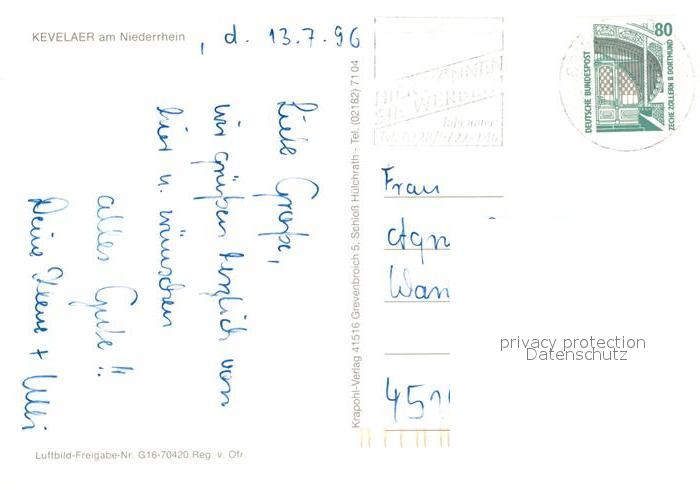 KEVELAER am Niederrhein
, d. 13.7.96
Liebe
wir grüßen herzlich von
hier u. wünschen
alles Gute !!
Deine + Ulli
Luftbild-Freigabe-Nr. G16-70420 Reg. v. Ofr.
Krapohl-Verlag 41516 Grevenbroich 5, Schloß Hülchrath - Tel. (02182) 7104
SIE WERDEN
80
DEUTSCHE BUNDESPOST
ZECHE ZOLLERN II DORTMUND
Frau
Agn
Wan
451
privacy protection
Datenschutz